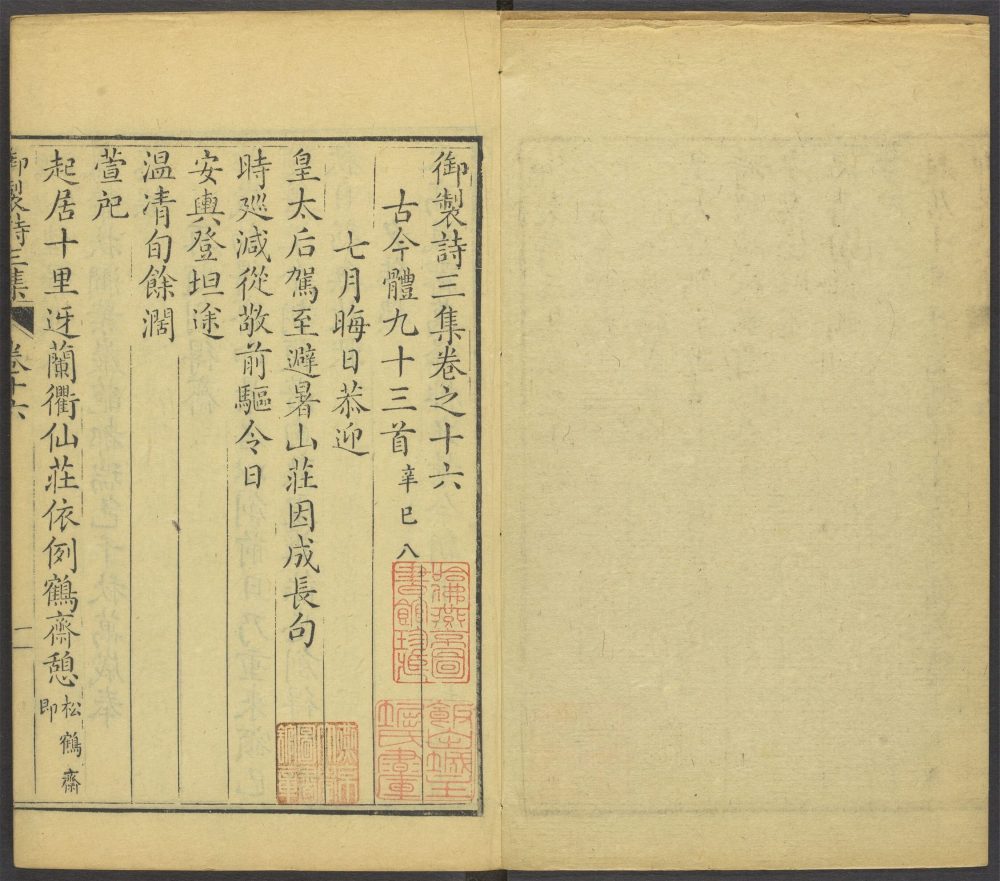 御製詩三集卷之十六
古今體九十三首辛巳八
七月晦日恭迎
皇太后駕至避暑山莊因成長句
時廵減從敬前驅今日
安輿登坦途
温凊旬餘濶
萱祀
起居十里迓蘭衢仙莊依例鶴齋憩松鶴齋即
御製詩三集 卷十六 一
哈佛燕京圖書館珍藏